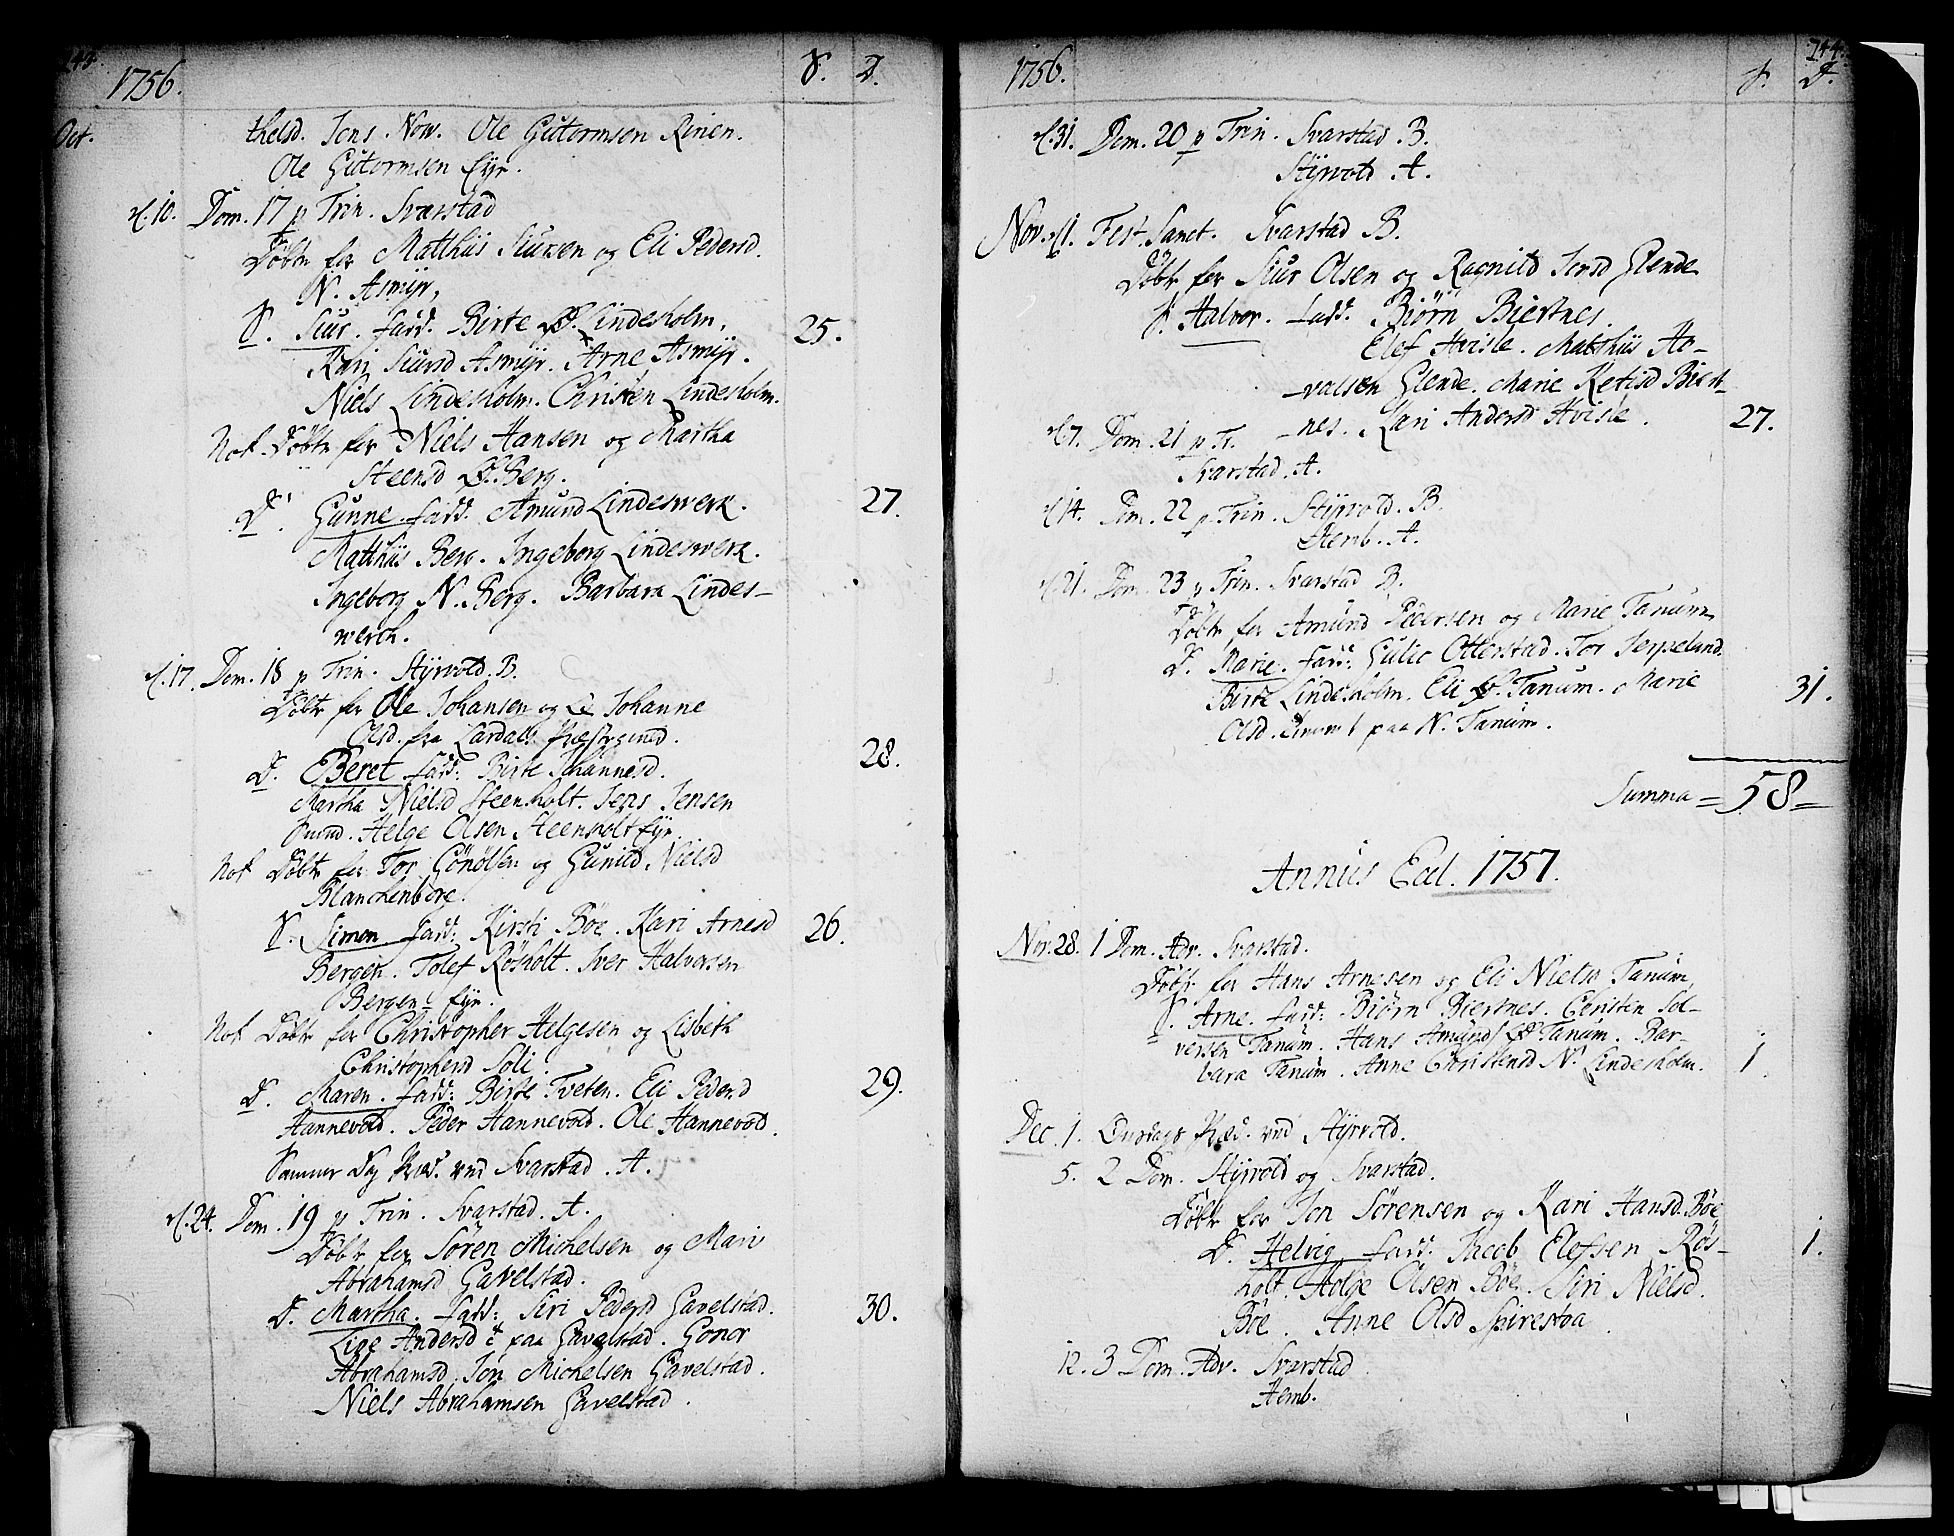 1756. S. D.
Oct. thelsd. Jens. Now. Ole Gutormsen Rinen.
Ole Gutormsen Eyr.
d. 10. Dom. 17 p Trin. Svarstad
Döbt for Matthiis Siursen og Eli Pedersd.
N. Asmyr,
S. Siur. fadd. Birte Lindesholm. 25.
Kari Siursd Asmyr. Arne Asmyr.
Niels Lindesholm. Christen Lindesholm.
Nok Döbt for Niels Hansen og Martha
Steensd Berg.
D. Gunne. fadd. Amund Lindeswerk. 27.
Matthiis Berg. Ingeborg Lindeswerk.
Ingeborg N. Berg. Barbara Lindes-
werck.
d. 17. Dom. 18 p Trin. Styrvold. B.
Döbt for Ole Johansen og Johanne
Olsd. fra Lardals Præstegield.
D. Beret fadd: Birte Johannesd. 28.
Martha Nielsd Steenholt. Jens Jensen
Helge Olsen Steenholt Eyr.
Nok Döbt for Tor Gönölsen og Gunild Nielsd
Blanckenborg.
S. Simon fadd: Kirsti Böe. Kari Arnesd 26.
Bergen. Tolef Rösholt. Iver Halvorsen
Bergen Eyr.
Nok Döbt for Christopher Helgesen og Lisbeth
Christophersd Soli.
D. Maren. fadd: Birte Tveten. Eli Pedersd 29.
Hannevold. Peder Hannevold. Ole Hannevold.
Samme Dag Præd. ved Svarstad. A.
d. 24. Dom. 19 p Trin. Svarstad. A.
Döbt for Sören Michelsen og Mari
Abrahamsd Gavelstad.
D. Martha. fadd: Siri Pedersd Gavelstad. 30.
Live Andersd paa Gavelstad. Gonor
Abrahamsd. Jon Michelsen Gavelstad.
Niels Abrahamsen Gavelstad.
244.
1756. S. D.
d. 31. Dom. 20 p Trin. Svarstad B.
Styrvold. A.
Nov. d1. Fest. Sanct. Svarstad B.
Döbt for Siur Olsen og Ragnild Jensd Glende
S. Halvor. fadd. Biørn Biertnes.
Elef Hvisle. Matthiis Ho-
valsen Glende. Marie Ketisd Biert-
nes. Kari Andersd Hvisle. 27.
d7. Dom. 21 p Tr.
Svarstad. A.
d14. Dom. 22 p Trin. Styrvold. B.
Hemb. A.
d21. Dom. 23 p Trin. Svarstad B.
Döbt for Amund Pedersen og Marie Tanum
D. Marie. fadd: Gulic Otterstad. Tor Jerpeland.
Birte Lindesholm. Eli Tanum. Marie 31.
Olsd. paa N. Tanum.
Summa = 58 =
Annus Eccl. 1757.
Nov. 28. 1 Dom. Adv. Svarstad.
Döbt for Hans Arnesen og Eli Nielsd Tanum
S. Arne. fadd: Biørn Biertnes. Christen Sol-
versen Tanum. Hans Amunds Tanum. Bar-
bara Tanum. Anne Christensd N. Lindesholm. 1
Dec. 1. Onsdags Præd. ved Styrvold.
5. 2 Dom. Styrvold og Svarstad.
Döbt for Jon Sörensen og Kari Hansd. Böe
D. Helvig fadd: Jacob Elefsen Rös- 1.
holt. Helge Olsen Böe. Siri Nielsd.
Böe. Anne Olsd Spirestoa.
12. 3 Dom. Adv. Svarstad
Hemb.